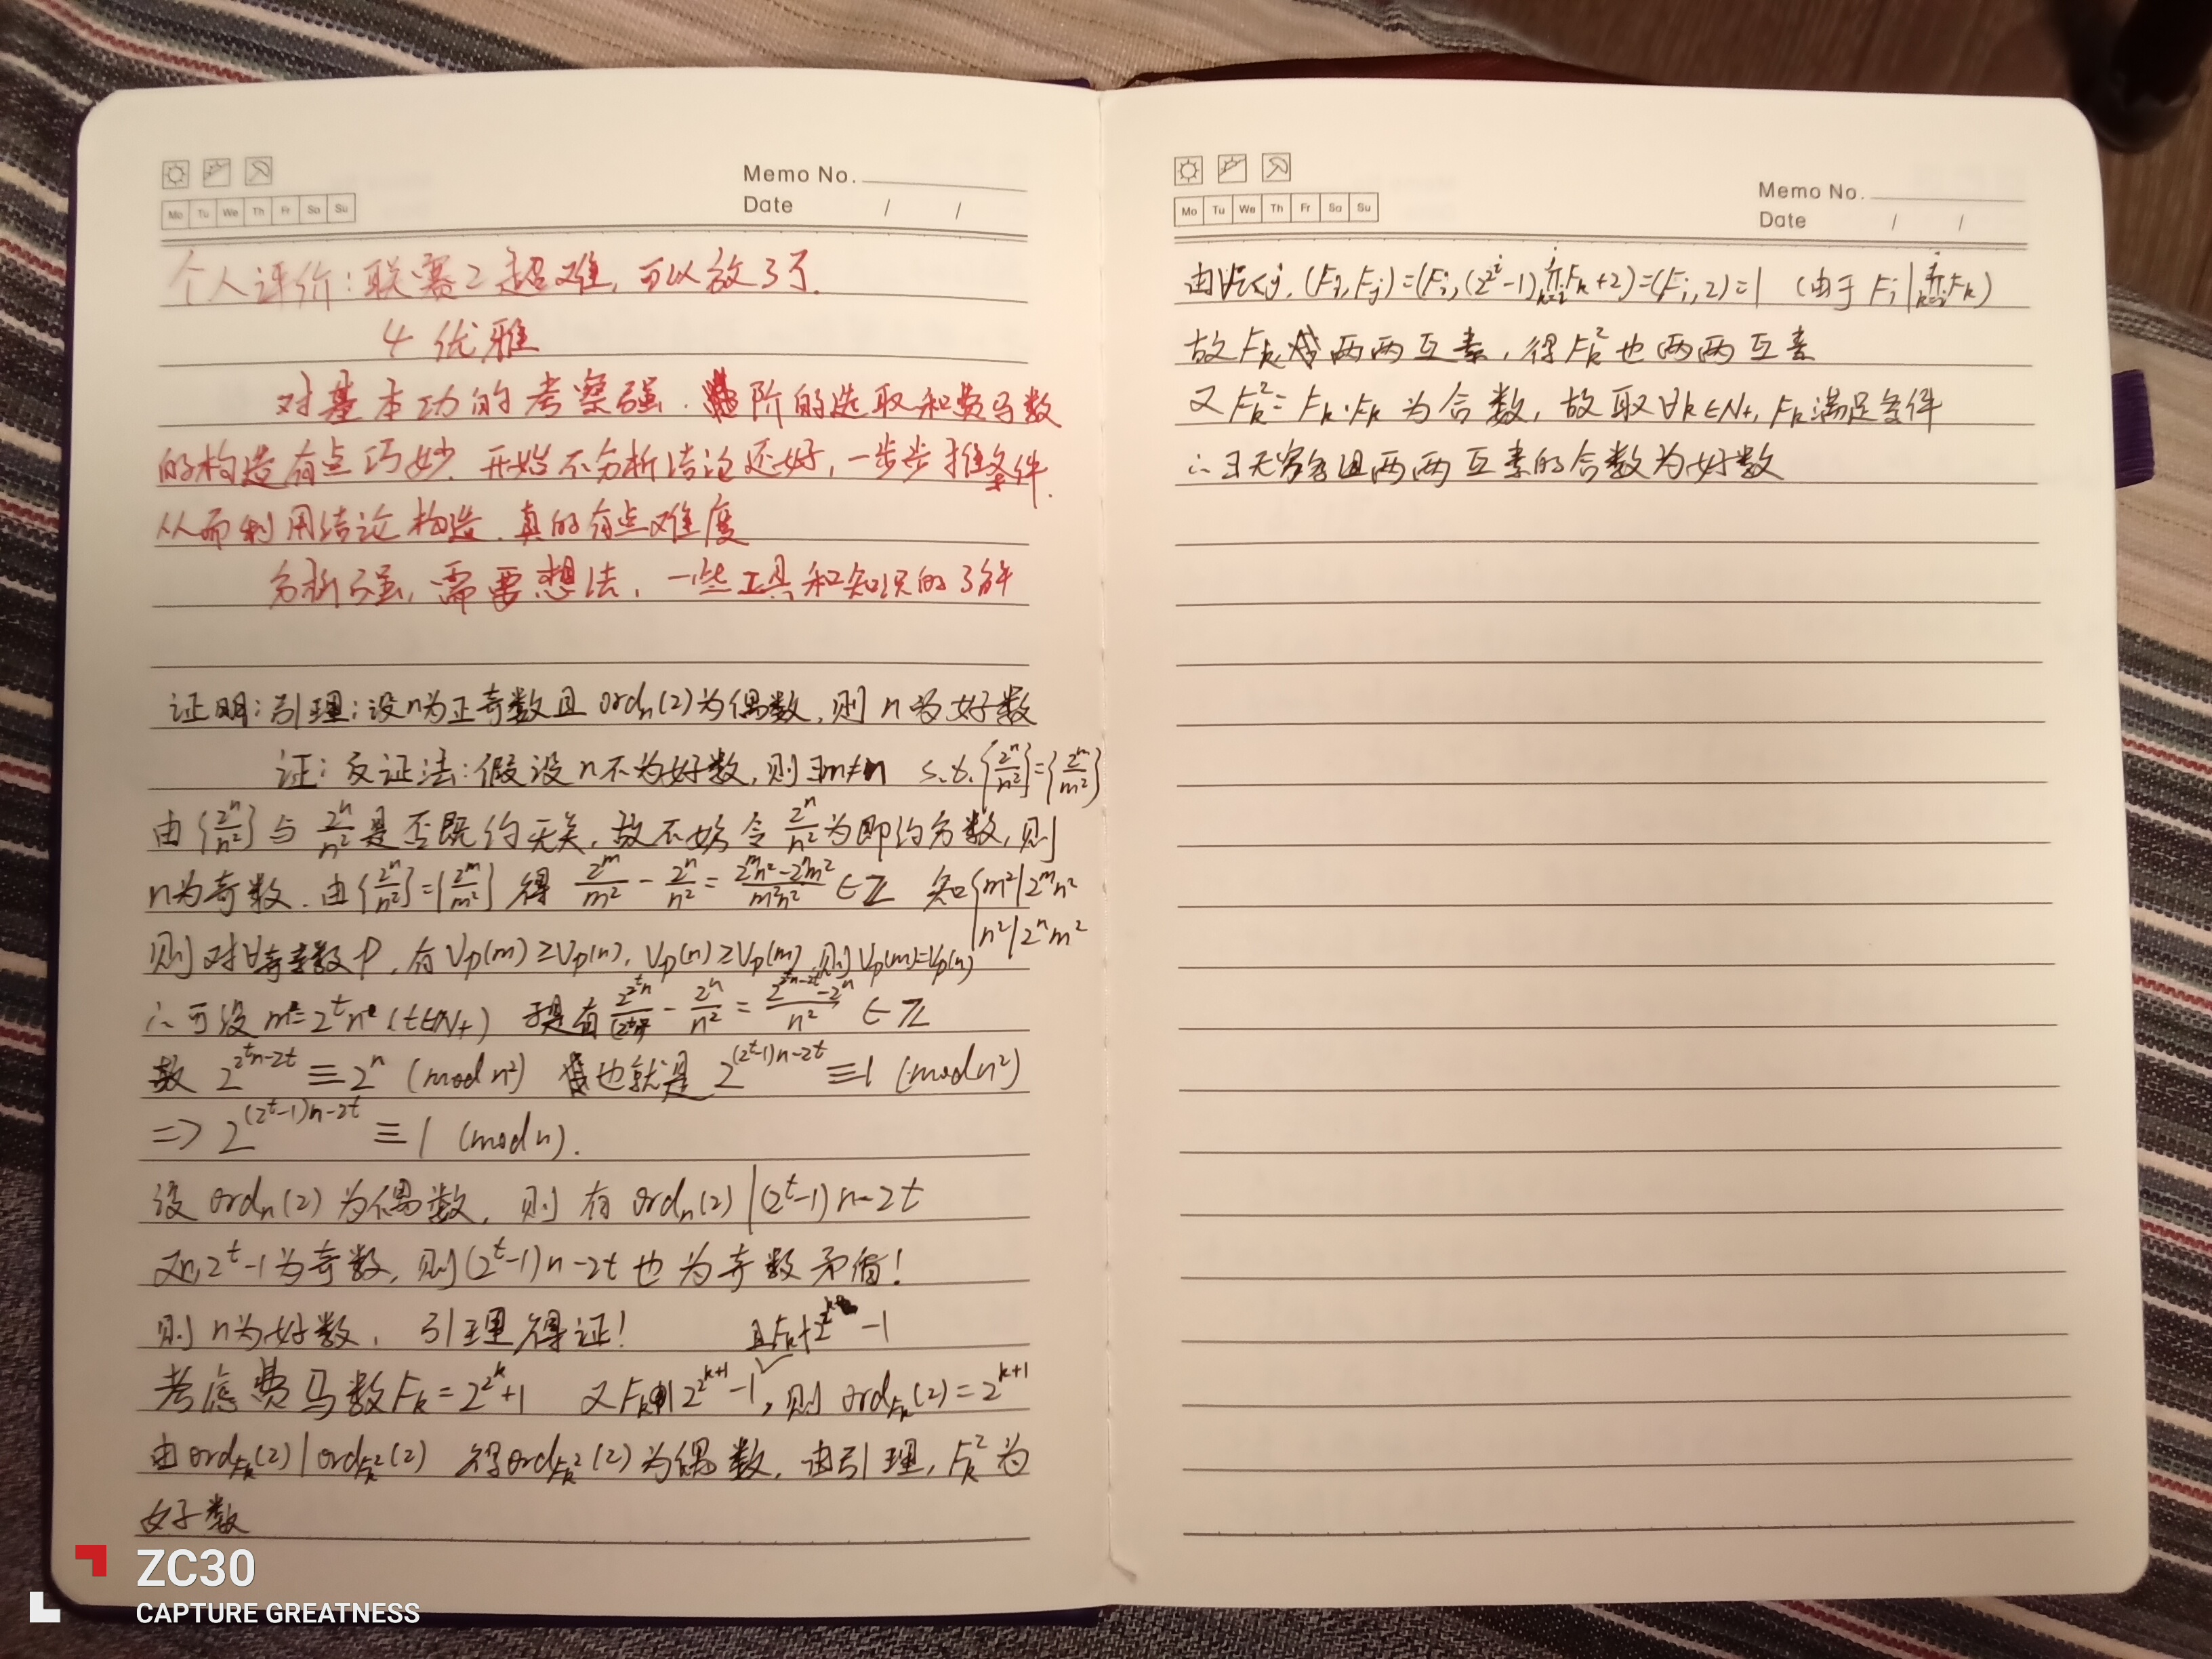 Memo No.
Date / /
Mo Tu We Th Fr Sa Su
个人评价：联赛2超难，可以放3了.
4 优雅
对基本功的考察强. 阶的选取和费马数
的构造有点巧妙. 开始不分析结论还好，一步步推条件.
从而利用结论构造. 真的有点难度
分析强，需要想法，一些工具和知识的了解
证明：引理：设n为正奇数且 ordₙ(2)为偶数，则 n为好数
证：反证法：假设n不为好数，则∃m≠n s.t. {2ⁿ/n²}={2ᵐ/m²}
由{2ⁿ/n²}与 2ⁿ/n² 是否既约无关，故不妨令 2ⁿ/n² 为即约分数，则
n为奇数. 由{2ⁿ/n²}={2ᵐ/m²} 得 2ᵐ/m² - 2ⁿ/n² = (2ᵐn²-2ⁿm²)/(m²n²) ∈ℤ 知{m²|2ᵐn²
n²|2ⁿm²
则对∀奇素数P，有 Vp(m)≥Vp(n), Vp(n)≥Vp(m), 则Vp(m)=Vp(n)
∴可设 m=2^t n (t∈N₊) 于是有 2^(2^t n)/(2^t n)² - 2ⁿ/n² = (2^(2^t n-2t) - 2ⁿ)/n² ∈ℤ
故 2^(2^t n-2t) ≡ 2ⁿ (mod n²) 也就是 2^((2^t-1)n-2t) ≡1 (mod n²)
=> 2^((2^t-1)n-2t) ≡ 1 (mod n).
设 ordₙ(2) 为偶数，则有 ordₙ(2) | (2^t-1)n-2t
又n,2^t-1为奇数，则(2^t-1)n-2t 也为奇数矛盾!
则 n为好数，引理得证!
且Fₖ∤2^(2^k)-1
考虑费马数Fₖ=2^(2^k)+1 又Fₖ|2^(2^(k+1))-1, 则 ord_Fₖ(2)=2^(k+1)
由ord_Fₖ(2)|ord_Fₖ²(2) 得ord_Fₖ²(2)为偶数，由引理，Fₖ²为
好数
ZC30
CAPTURE GREATNESS
Memo No.
Date / /
Mo Tu We Th Fr Sa Su
由∀i<j, (Fᵢ,Fⱼ)=(Fᵢ,(2^i-1)∏Fₖ+2)=(Fᵢ,2)=1 (由于 Fᵢ|∏Fₖ)
故Fₖ两两互素，得Fₖ²也两两互素
又Fₖ²=Fₖ·Fₖ为合数，故取∀k∈N₊, Fₖ满足条件
∴∃无穷多且两两互素的合数为好数